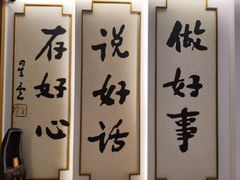 做好事
说好话
存好心
星云